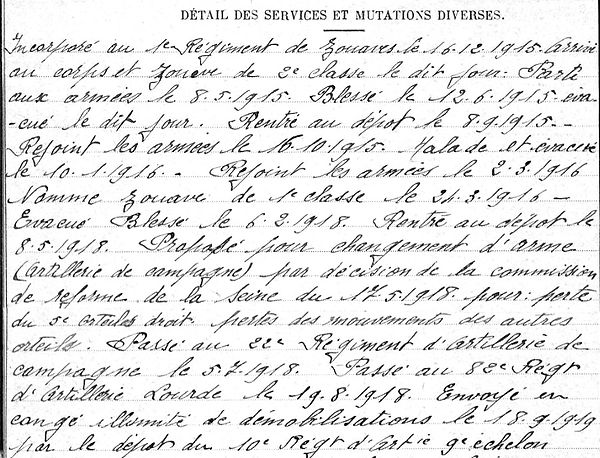 DÉTAIL DES SERVICES ET MUTATIONS DIVERSES.
Incorporé au 1e Régiment de Zouaves le 16.12.1915. Arrivé
au corps et Zouave de 2e classe le dit jour. Parti
aux armées le 8.5.1915. Blessé le 12.6.1915 éva-
-cué le dit jour. Rentré au dépot le 8.9.1915. -
Rejoint les armées le 16.10.1915. Malade et évacué
le 10.1.1916. - Rejoint les armées le 2.3.1916
Nommé Zouave de 1e classe le 24.3.1916 -
Evacué Blessé le 6.2.1918. Rentré au dépot le
8.5.1918. Proposé pour changement d'arme
(Artillerie de campagne) par décision de la commission
de réforme de la Seine du 17.5.1918. pour: perte
du 5e orteils droit. pertes des mouvements des autres
orteils. Passé au 22e Régiment d'Artillerie de
campagne le 5.7.1918. Passé au 82e Régt
d'Artillerie Lourde le 19.8.1918. Envoyé en
congé illimité de démobilisations le 18.9.1919
par le dépot du 10e Régt d'Artie 9e échelon